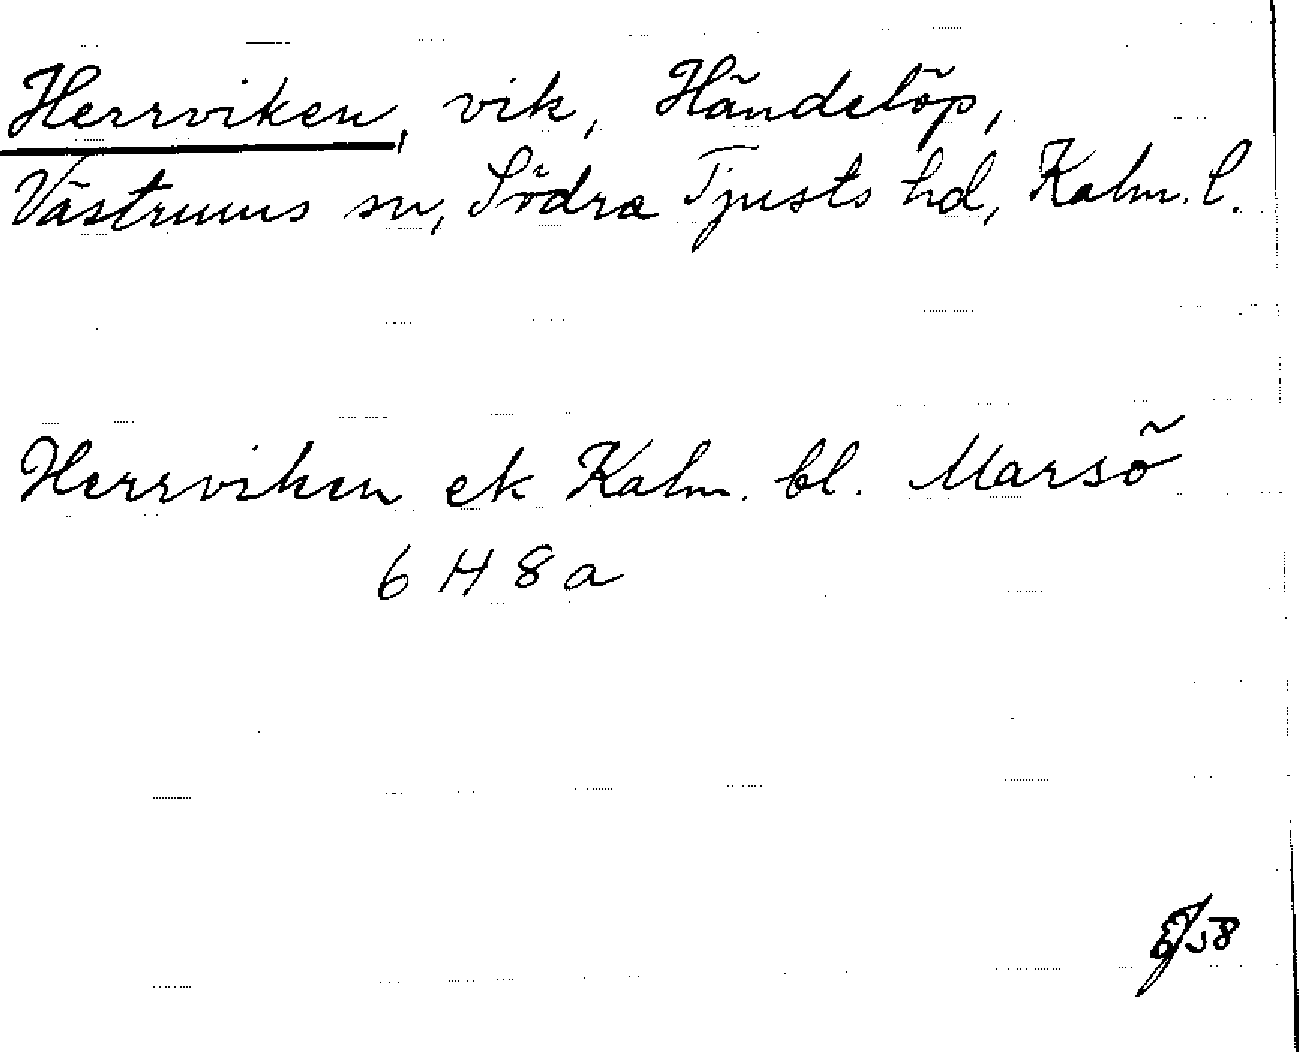 Herrviken, vik, Händelöp,
Västrums sn, Södra Tjusts hd, Kalm. l.
Herrviken ek Kalm. bl. Marsö
6 H 8 a
58